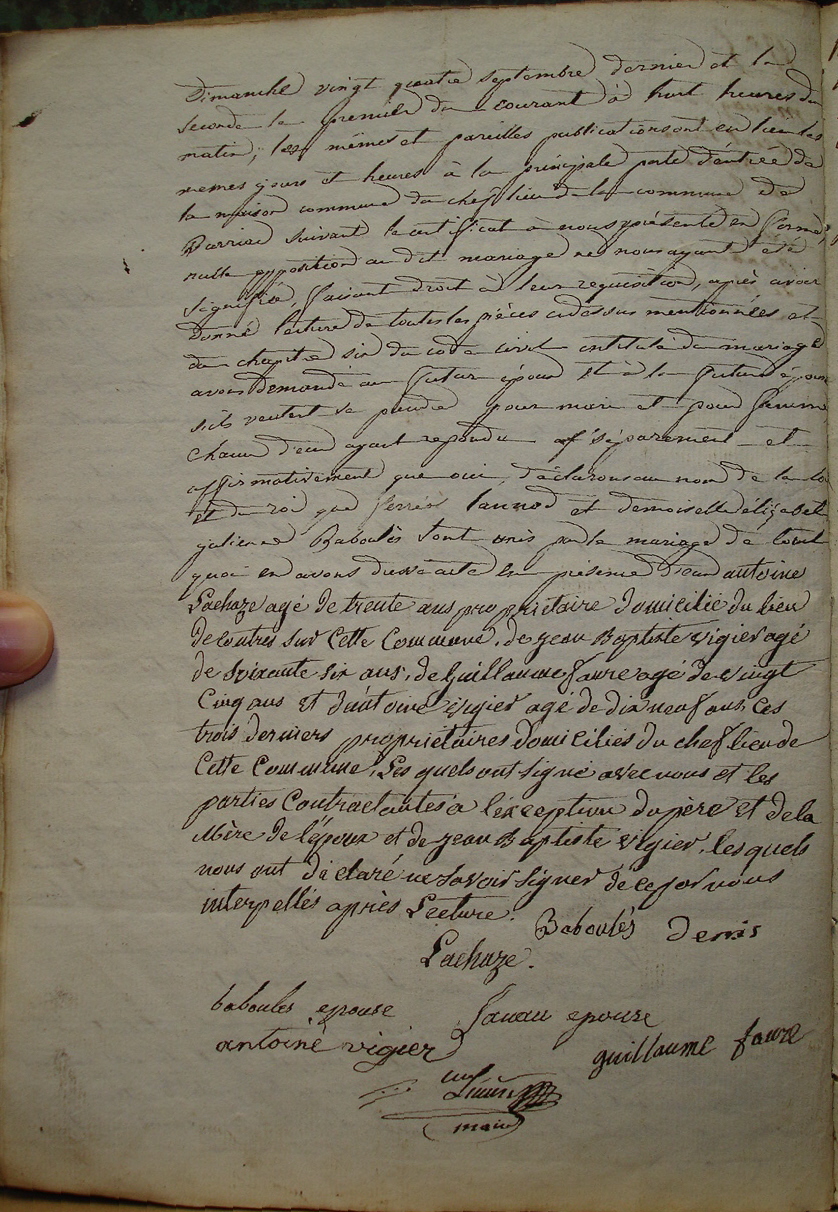 Dimanche vingt quatre septembre dernier et la
seconde le premier du courant à huit heures du
matin, les mêmes et pareilles publications ont eu lieu les
memes jours et heures à la principale porte d'entrée de
la maison commune du chef lieu de la commune de
suivant le certificat a nous présenté en forme,
nulle opposition au dit mariage ne nous ayant été
signifiée, faisant droit à leur requisition, après avoir
donné lecture de toutes les pièces cidessus mentionnées et
du chapitre six du code civil intitulé du mariage
avons demandé au futur époux et à la future épouse
sils veulent se prendre pour mari et pour femme
chacun d'eux ayant repondu séparement et
affirmativement que oui, déclarons au nom de la loi
et du roi que et demoiselle élizabet
Baboulès sont unis par le mariage de tout
quoi en avons dressé acte en presence d'eux antoine
Lachaze agé de trente ans propriétaire domicilié du lieu
de coutres sur Cette Commune, de jean Baptiste vigier agé
de soixante six ans, de Guillaume faure agé de vingt
Cinq ans et d'antoine vigier agé de dix neuf ans, Ces
trois derniers propriétaires domiciliés du chef lieu de
Cette Commune, Les quels ont signé avec nous et les
parties Contractantes à l'exception du père et de la
Mère de l'époux et de jean Baptiste vigier, les quels
nous ont déclaré ne savoir signer de ce par nous
interpellés après Lecture.
Baboulès denis
Lachaze.
baboules epouse
epouse
antoine vigier
guillaume faure
maire